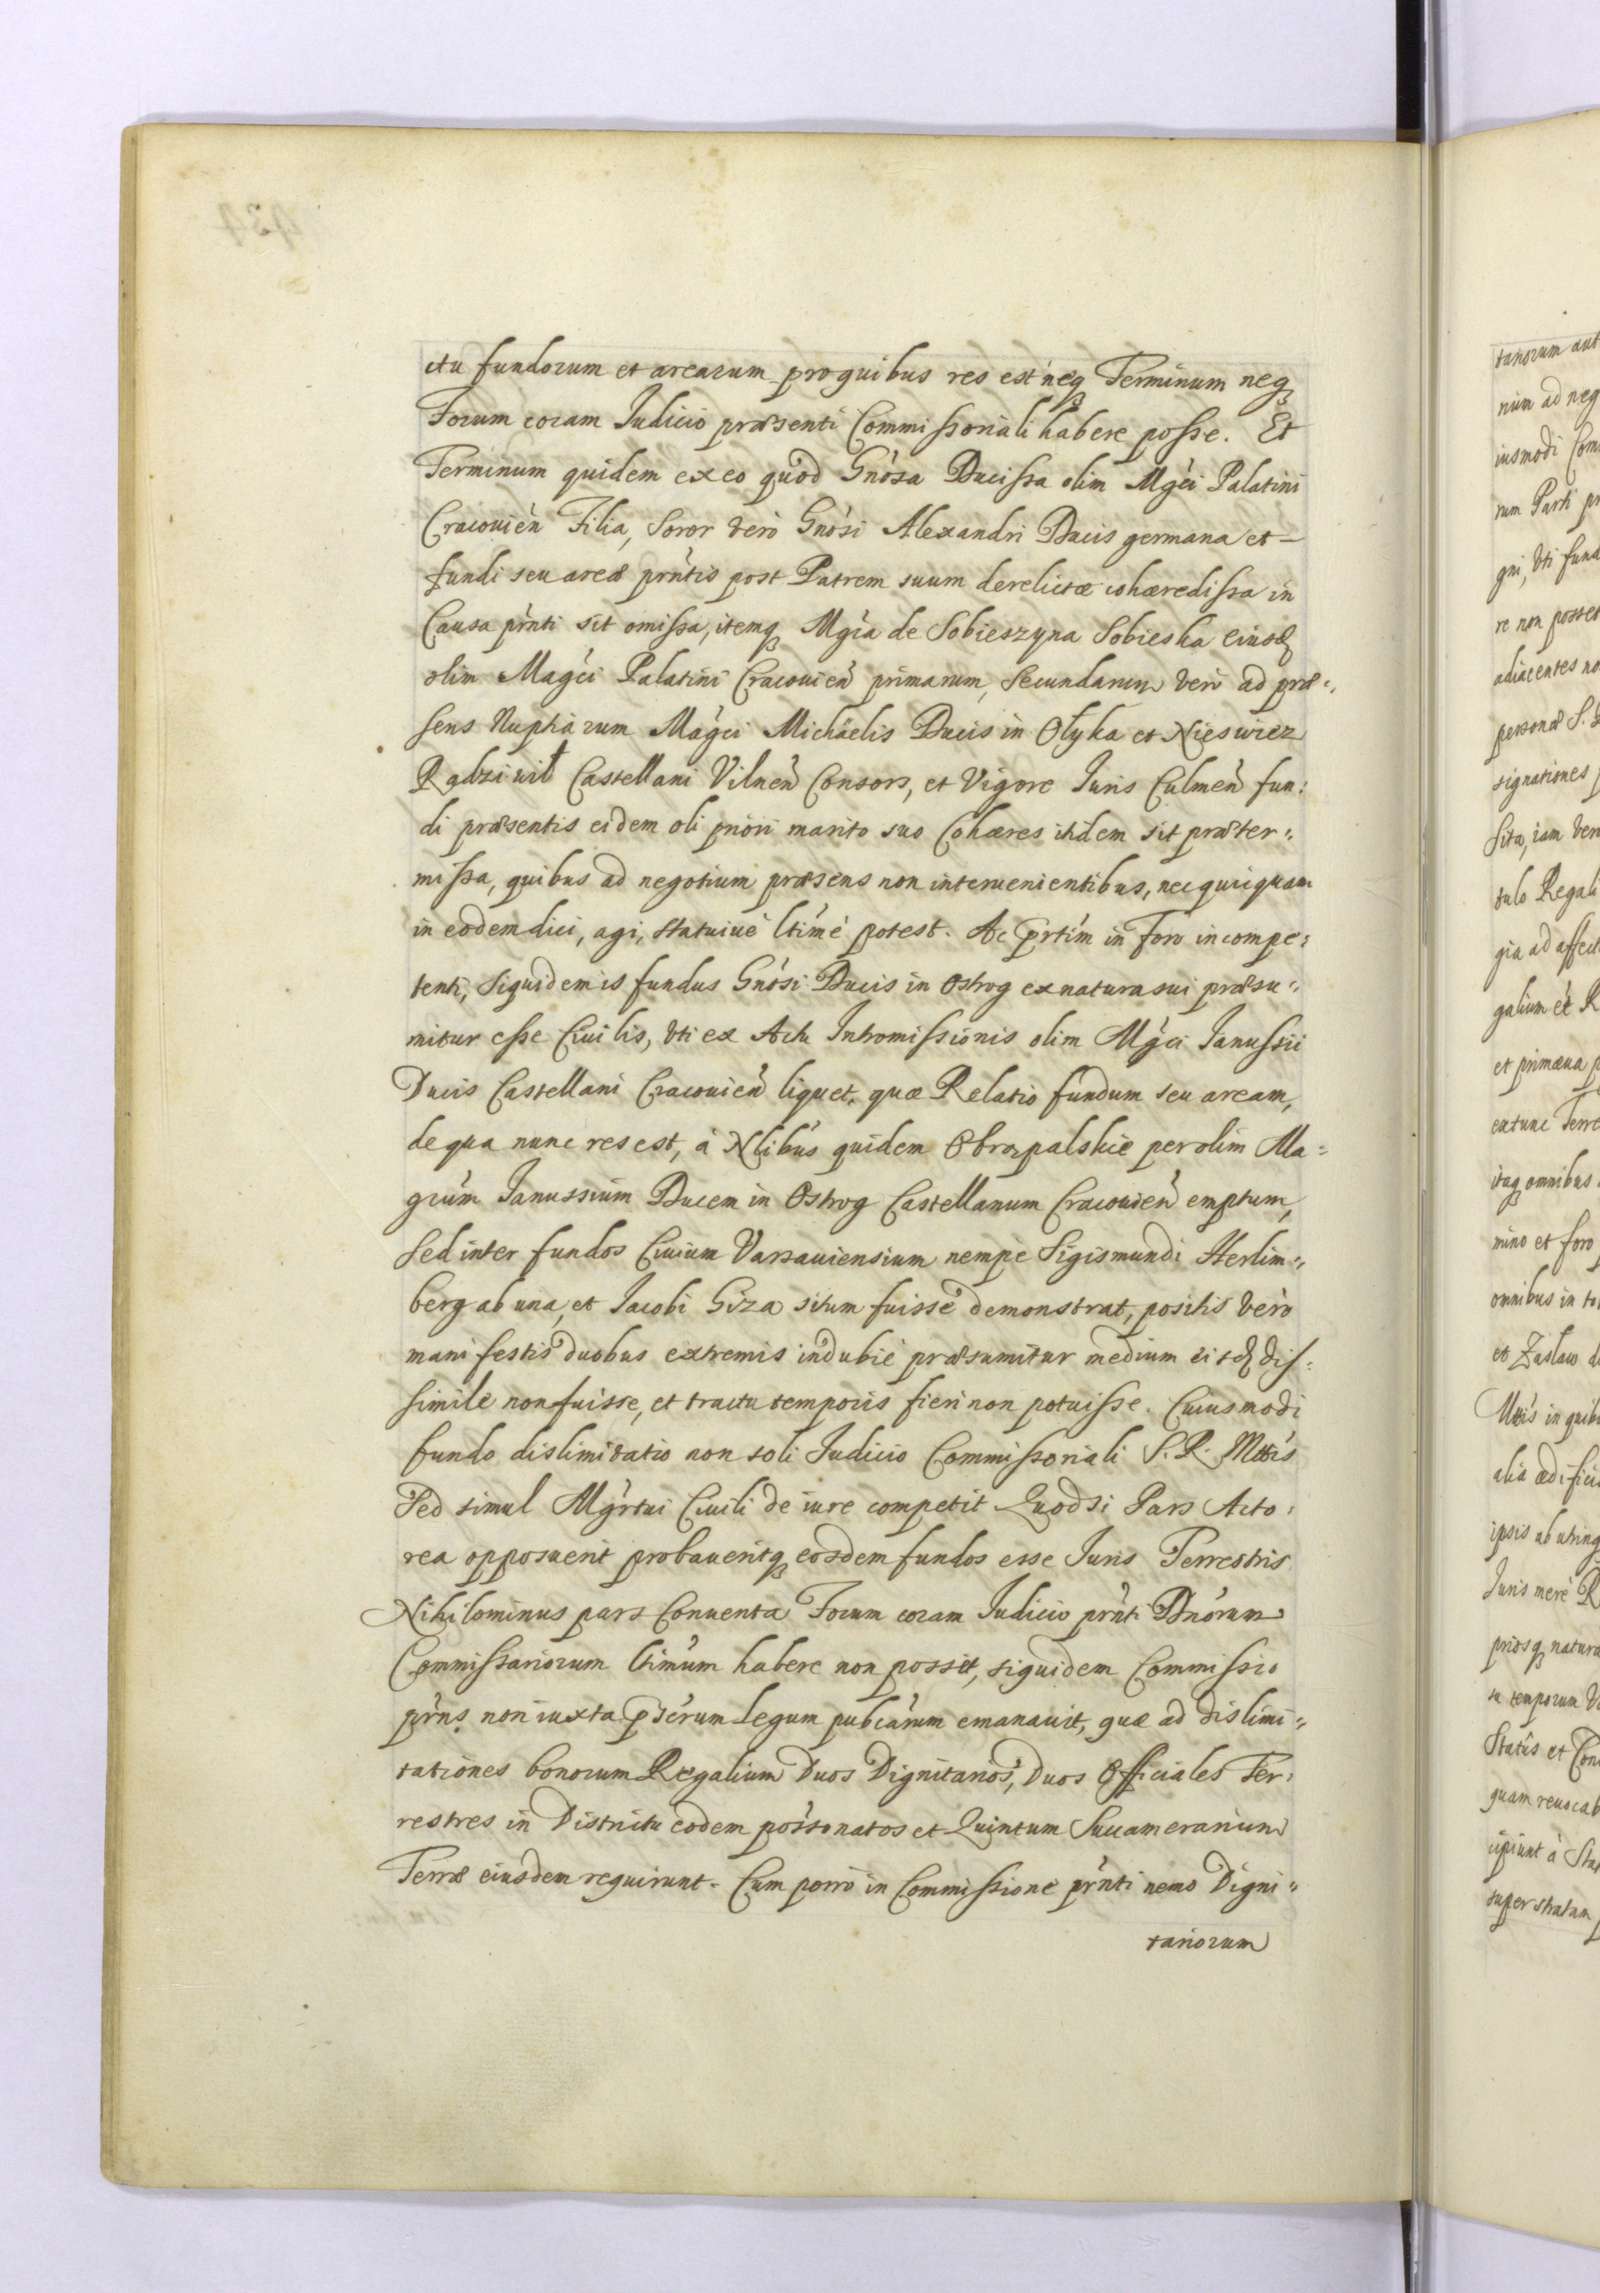 itu fundorum et arearum proquibus res est neq Terminum neq
Forum coram Judicio præsenti Commissoriali habere posse. Et
Terminum quidem ex eo quod Gnósa Ducissa olim Mgći Palatini
Cracouień Filia, Soror verò Gnósi Alexandri Ducis germana et
fundi seu areæ prńtis post Patrem suum derelictæ cohæredissa in
Causa prńti sit omissa, itemq Mgía de Sobieszyna Sobieska eiusd
olim Magći Palatini Cracouień primarum, Secundarum verò ad præ=
sens Nuptiarum Mágci Michaëlis Ducis in Ołyka et Nieswiez
Radziwił Castellani Vilneń Consors, et Vigore Iuris Culmeń fun:
di præsentis eidem oli priori marito suo Cohæres itidem sit præter=
missa, quibus ad negotium præsens non interuenientibus, nec quicquam
in eodem dici, agi, statuiuè ltímè potest. Ac prtím in Foro incompe:
tenti, Siquidem is fundus Gnósi Ducis in Ostrog ex natura sui præsu=
mitur esse Ciuilis, vti ex Actu Intromissionis olim Mgći Janussii
Ducis Castellani Cracouień liquet, quæ Relatio fundum seu aream,
de qua nunc res est, à Nlibús quidem Obrąpalskie per olim Ma=
gcúm Janussium Ducem in Ostrog Castellanum Cracouień emptum,
Sed inter fundos Ciuium Varsauiensium nempè Sigismundi Herlim=
berg ab una, et Jacobi Giza situm fuisse demonstrat, positis verò
manifestis duobus extremis indubiè præsumitur medium eisd dis=
simile non fuisse, et tractu temporis fieri non potuisse. Cuiusmodi
fundo dislimitatio non soli Judicio Commissoriali S. R. Mttis
Sed simul Mgŕtui Ciuili de iure competit Quodsi Pars Acto:
rea opposuerit probaueritq eosdem fundos esse Iuris Terrestris
Nihilominus pars Conuenta Forum coram Judicio prńti Dnórum
Commissariorum ltimúm habere non possit, siquidem Commissio
prńs non iuxta psćrum Legum pubcárum emanauit, quæ ad dislimi=
tationes bonorum Regalium Duos Dignitarios, Duos Officiales Ter:
restres in Districtu eodem póssonatos et Quintum Succamerarium
Terræ eiusdem requirunt. Cum porrò in Commissione prńti nemo Digni=
tariorum